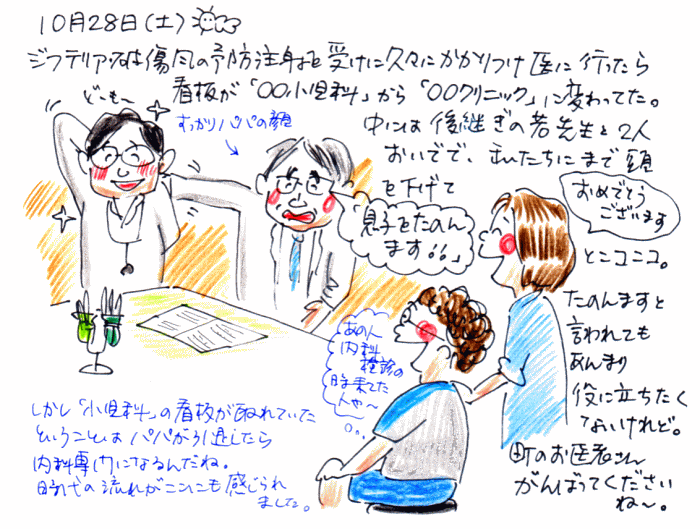 10月28日(土)
ジフテリア、破傷風の予防注射を受けに久々にかかりつけ医に行ったら
看板が「〇〇小児科」から「〇〇クリニック」に変わってた。
中には後継ぎの若先生と2人
おいでで、私たちにまで頭
を下げて
「息子をたのん
ます。。」
ど〜も〜
すっかりパパの顔
おめでとう
ございます
とニコニコ。
たのんますと
言われても
あんまり
役に立ちたく
ないけれど。
町のお医者さん
がんばってください
ね〜。
あの人
内科
検診の
時来てた
人や〜
しかし「小児科」の看板が取れていた
ということはパパが引退したら
内科専門になるんだね。
時代の流れがここにも感じられ
ました。